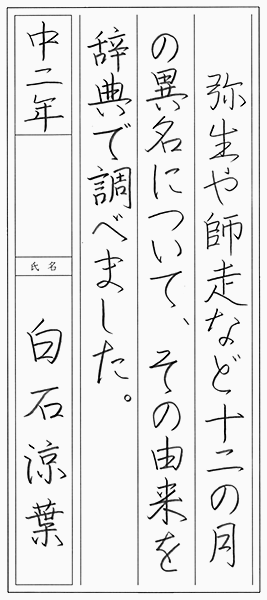 弥生や師走など十二の月
の異名について、その由来を
辞典で調べました。
中二年
氏名
白石涼葉